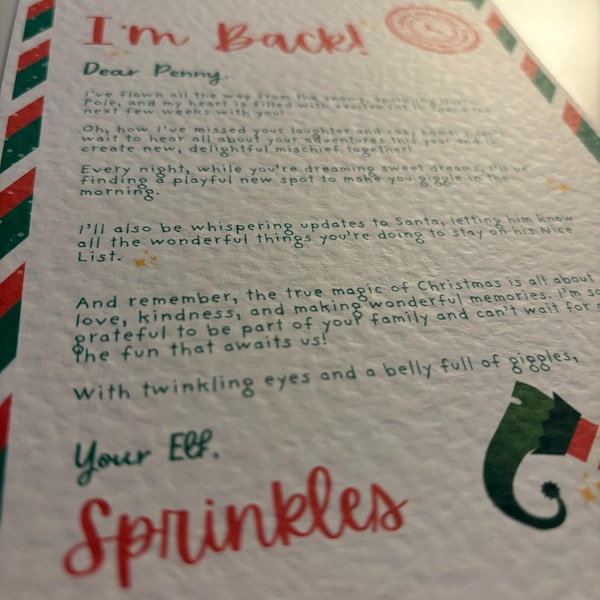 I'm Back!
Dear Penny,
I've flown all the way from the snowy, sparkling North
Pole, and my heart is filled with excitement to spend the
next few weeks with you!
Oh, how I've missed your laughter and cosy home! I can't
wait to hear all about your adventures this year and
create new, delightful mischief together!
Every night, while you're dreaming sweet dreams, I'll be
finding a playful new spot to make you giggle in the
morning.
I'll also be whispering updates to Santa, letting him know
all the wonderful things you're doing to stay on his Nice
List.
And remember, the true magic of Christmas is all about
love, kindness, and making wonderful memories. I'm so
grateful to be part of your family and can't wait for
the fun that awaits us!
With twinkling eyes and a belly full of giggles,
Your Elf,
Sprinkles